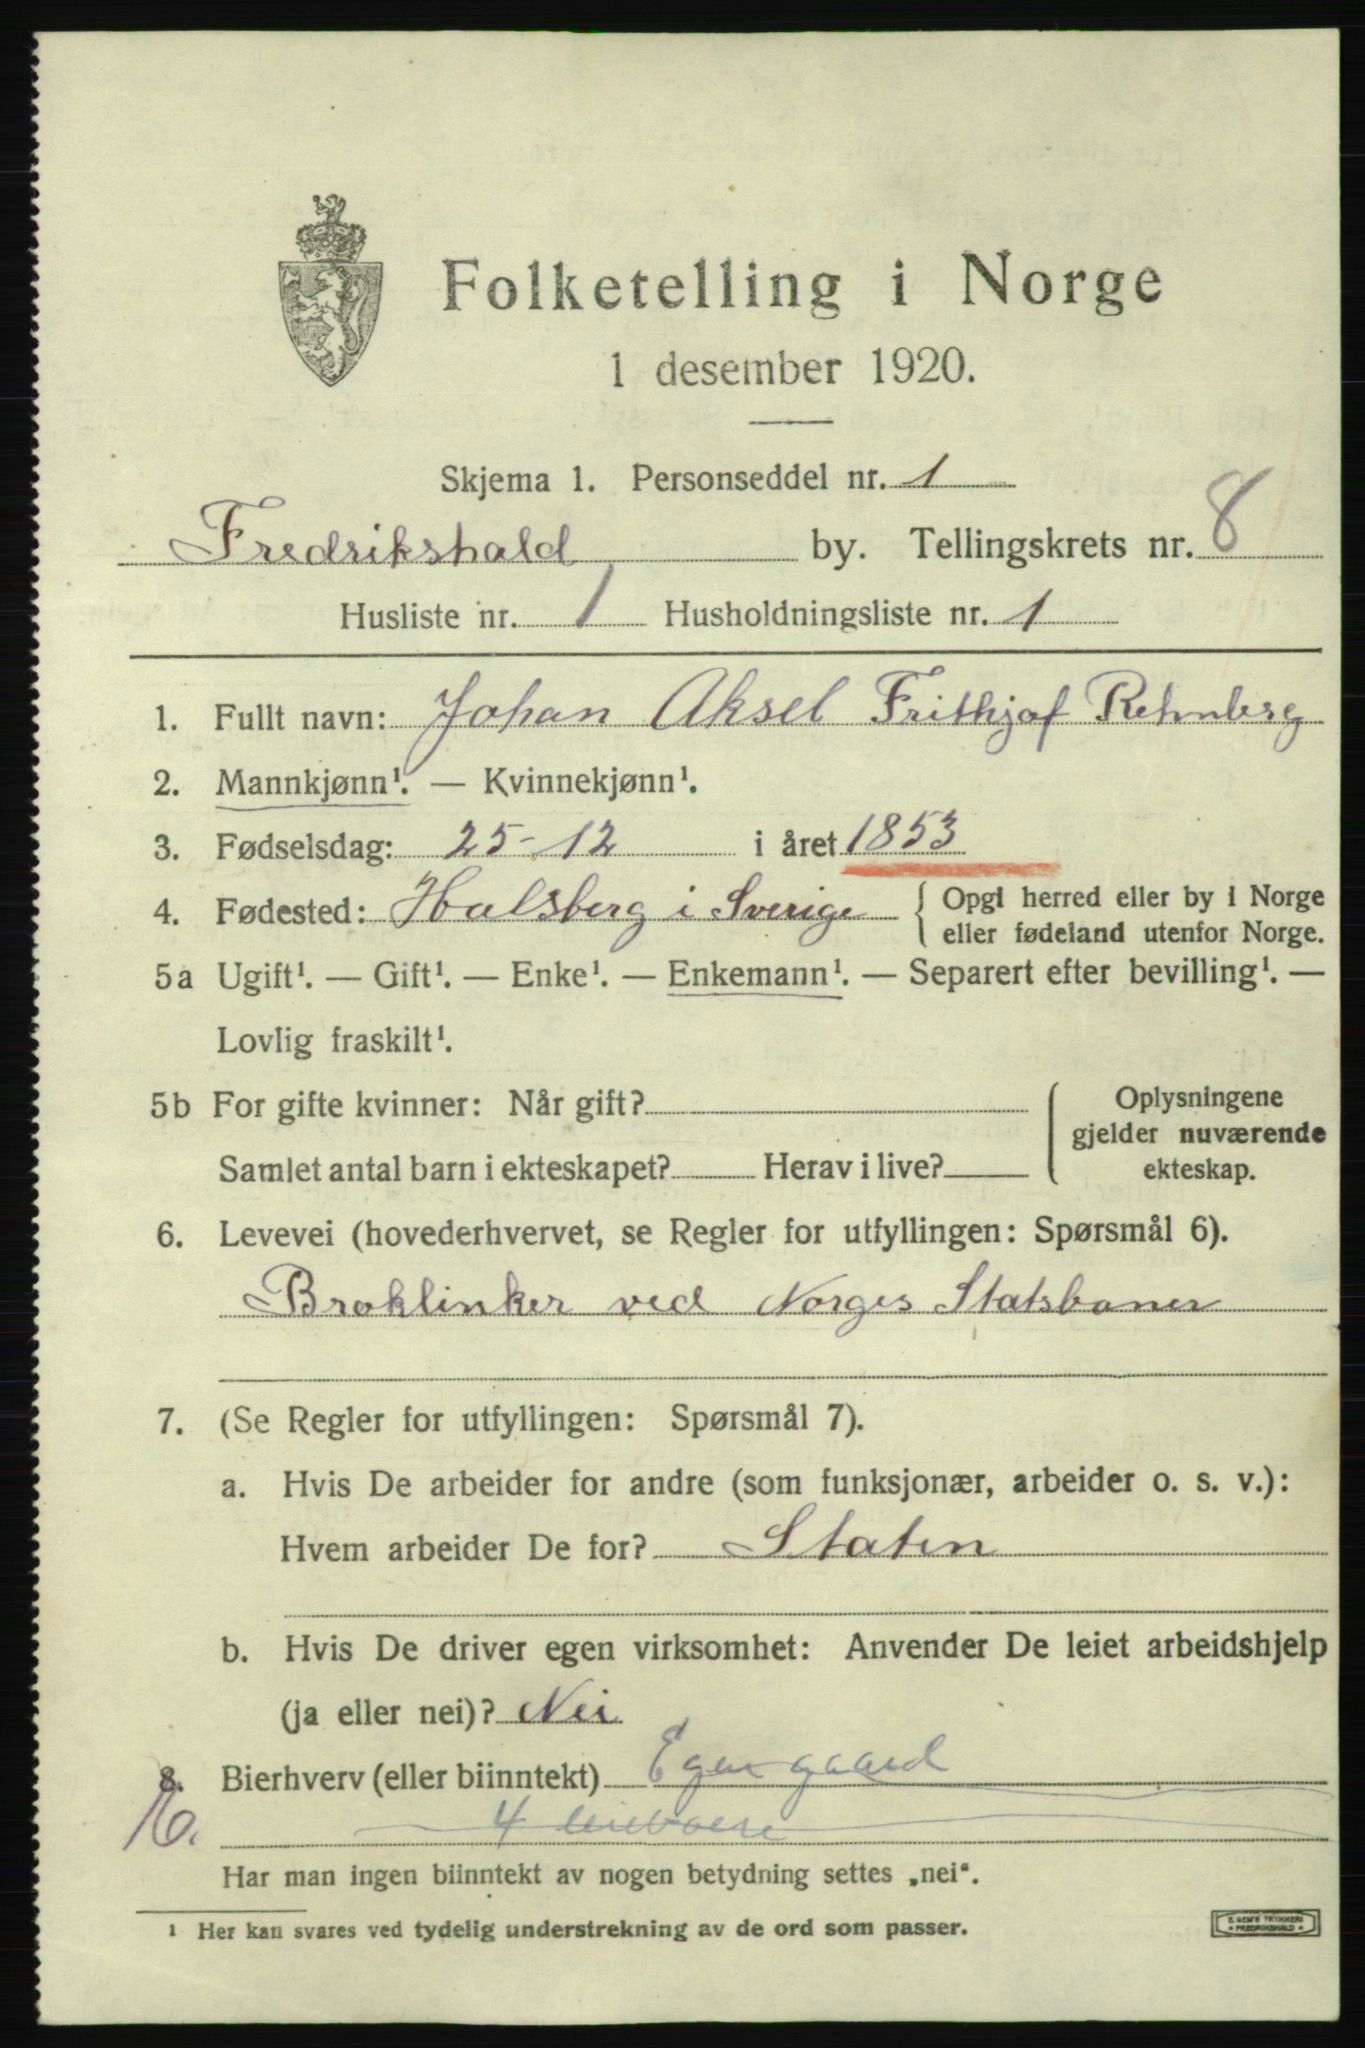 Folketelling i Norge
1 desember 1920.
Skjema 1. Personseddel nr. 1
Fredrikshald by. Tellingskrets nr. 8
Husliste nr. 1 Husholdningsliste nr. 1
1. Fullt navn: Johan Aksel Frithjof Rehnberg
2. Mannkjønn¹. — Kvinnekjønn¹.
3. Fødselsdag: 25-12 i året 1853
4. Fødested: Halsberg i Sverige { Opgi herred eller by i Norge
eller fødeland utenfor Norge.
5a Ugift¹. — Gift¹. — Enke¹. — Enkemann¹. — Separert efter bevilling¹. —
Lovlig fraskilt¹.
5b For gifte kvinner: Når gift?
Samlet antal barn i ekteskapet? Herav i live?
Oplysningene
gjelder nuværende
ekteskap.
6. Levevei (hovederhvervet, se Regler for utfyllingen: Spørsmål 6).
Broklinker ved Norges Statsbaner
7. (Se Regler for utfyllingen: Spørsmål 7).
a. Hvis De arbeider for andre (som funksjonær, arbeider o. s. v.):
Hvem arbeider De for? Staten
b. Hvis De driver egen virksomhet: Anvender De leiet arbeidshjelp
(ja eller nei)? Nei
8. Bierhverv (eller biinntekt) Egen gaard
4 leieboere
Har man ingen biinntekt av nogen betydning settes „nei“.
¹ Her kan svares ved tydelig understrekning av de ord som passer.